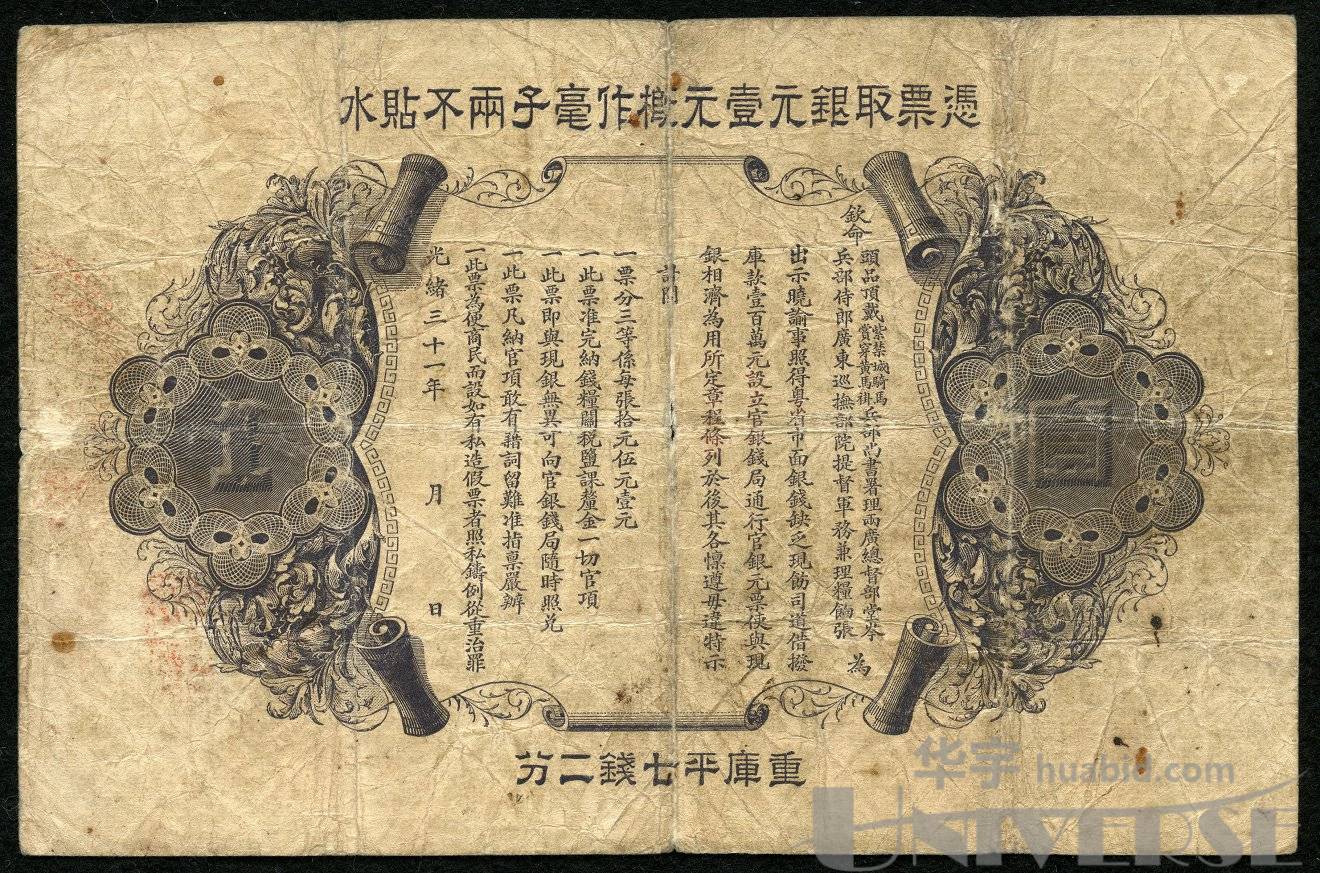 憑票取銀元壹元概作毫子兩不貼水
欽命
頭品頂戴紫禁城騎馬賞穿黃馬褂兵部尚書署理兩廣總督部堂岑
兵部侍郎廣東巡撫部院提督軍務兼理糧餉張
為
出示曉諭事照得粵省市面銀錢缺乏現飭司道借撥
庫款壹百萬元設立官銀錢局通行官銀元票俠與現
銀相濟為用所定章程條列於後其各懍遵毋違特示
計開
一票分三等係每張拾元伍元壹元
一此票准完納錢糧關稅鹽課釐金一切官項
一此票即與現銀無異可向官銀錢局隨時照兌
一此票凡納官項敢有藉詞留難准指稟嚴辦
一此票為便商民而設如有私造假票者照私鑄例從重治罪
光緒三十一年 月 日
圓
壹
重庫平七錢二分
华宇 huabid.com
UNIVERSE